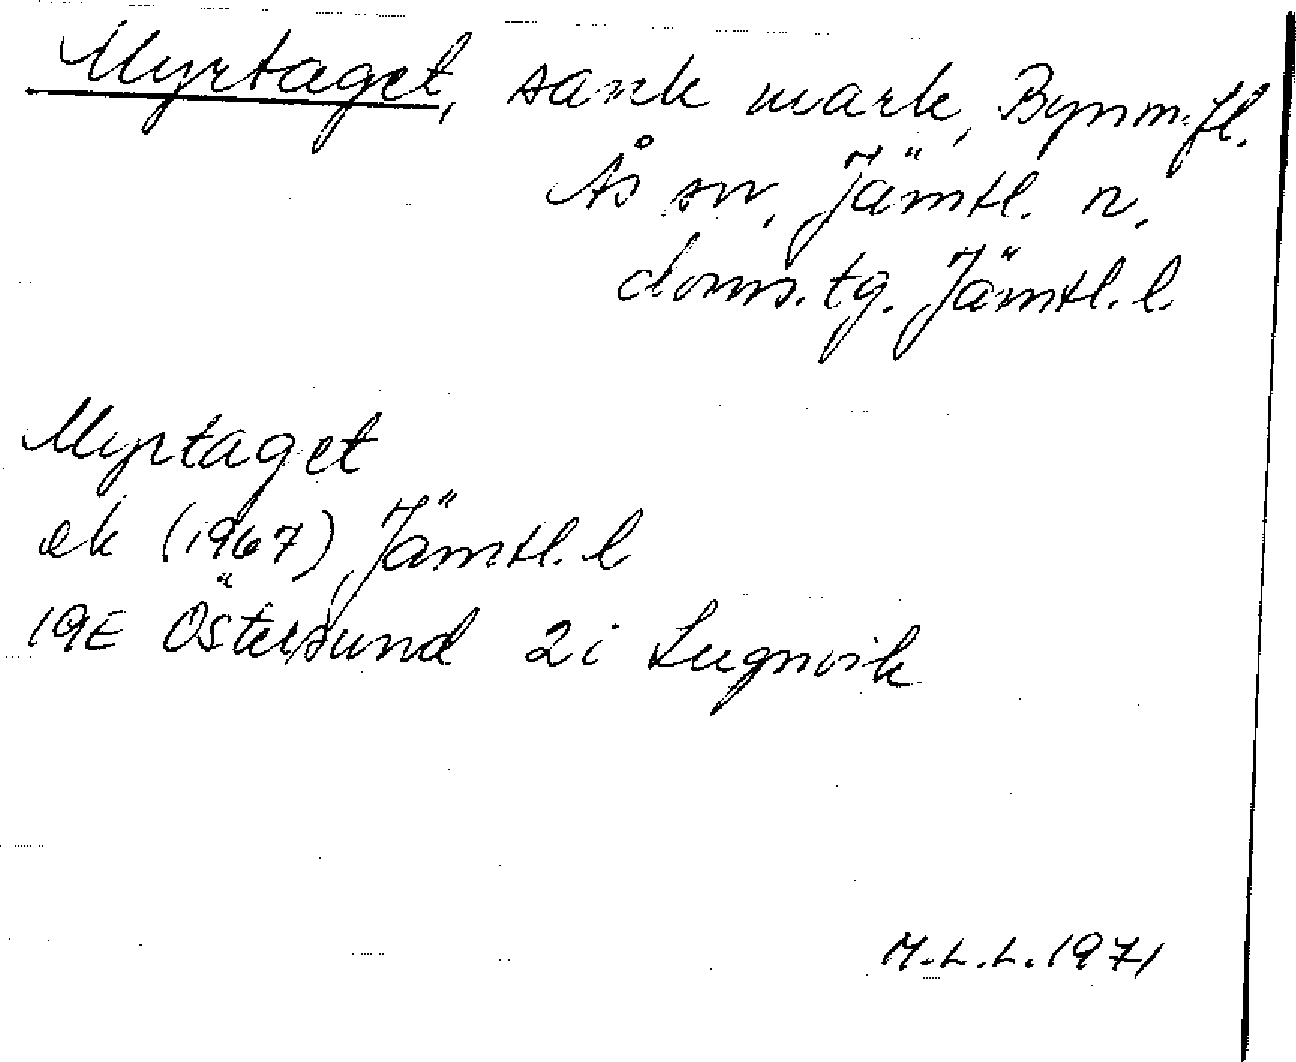 Myrtaget, sank mark, Bynm.fl.
Ås sn, Jämtl. n.
doms. tg. Jämtl. l.
Myrtaget
ek (1967), Jämtl. l
19E Östersund 2i Lugnvik
M.L.L. 1971